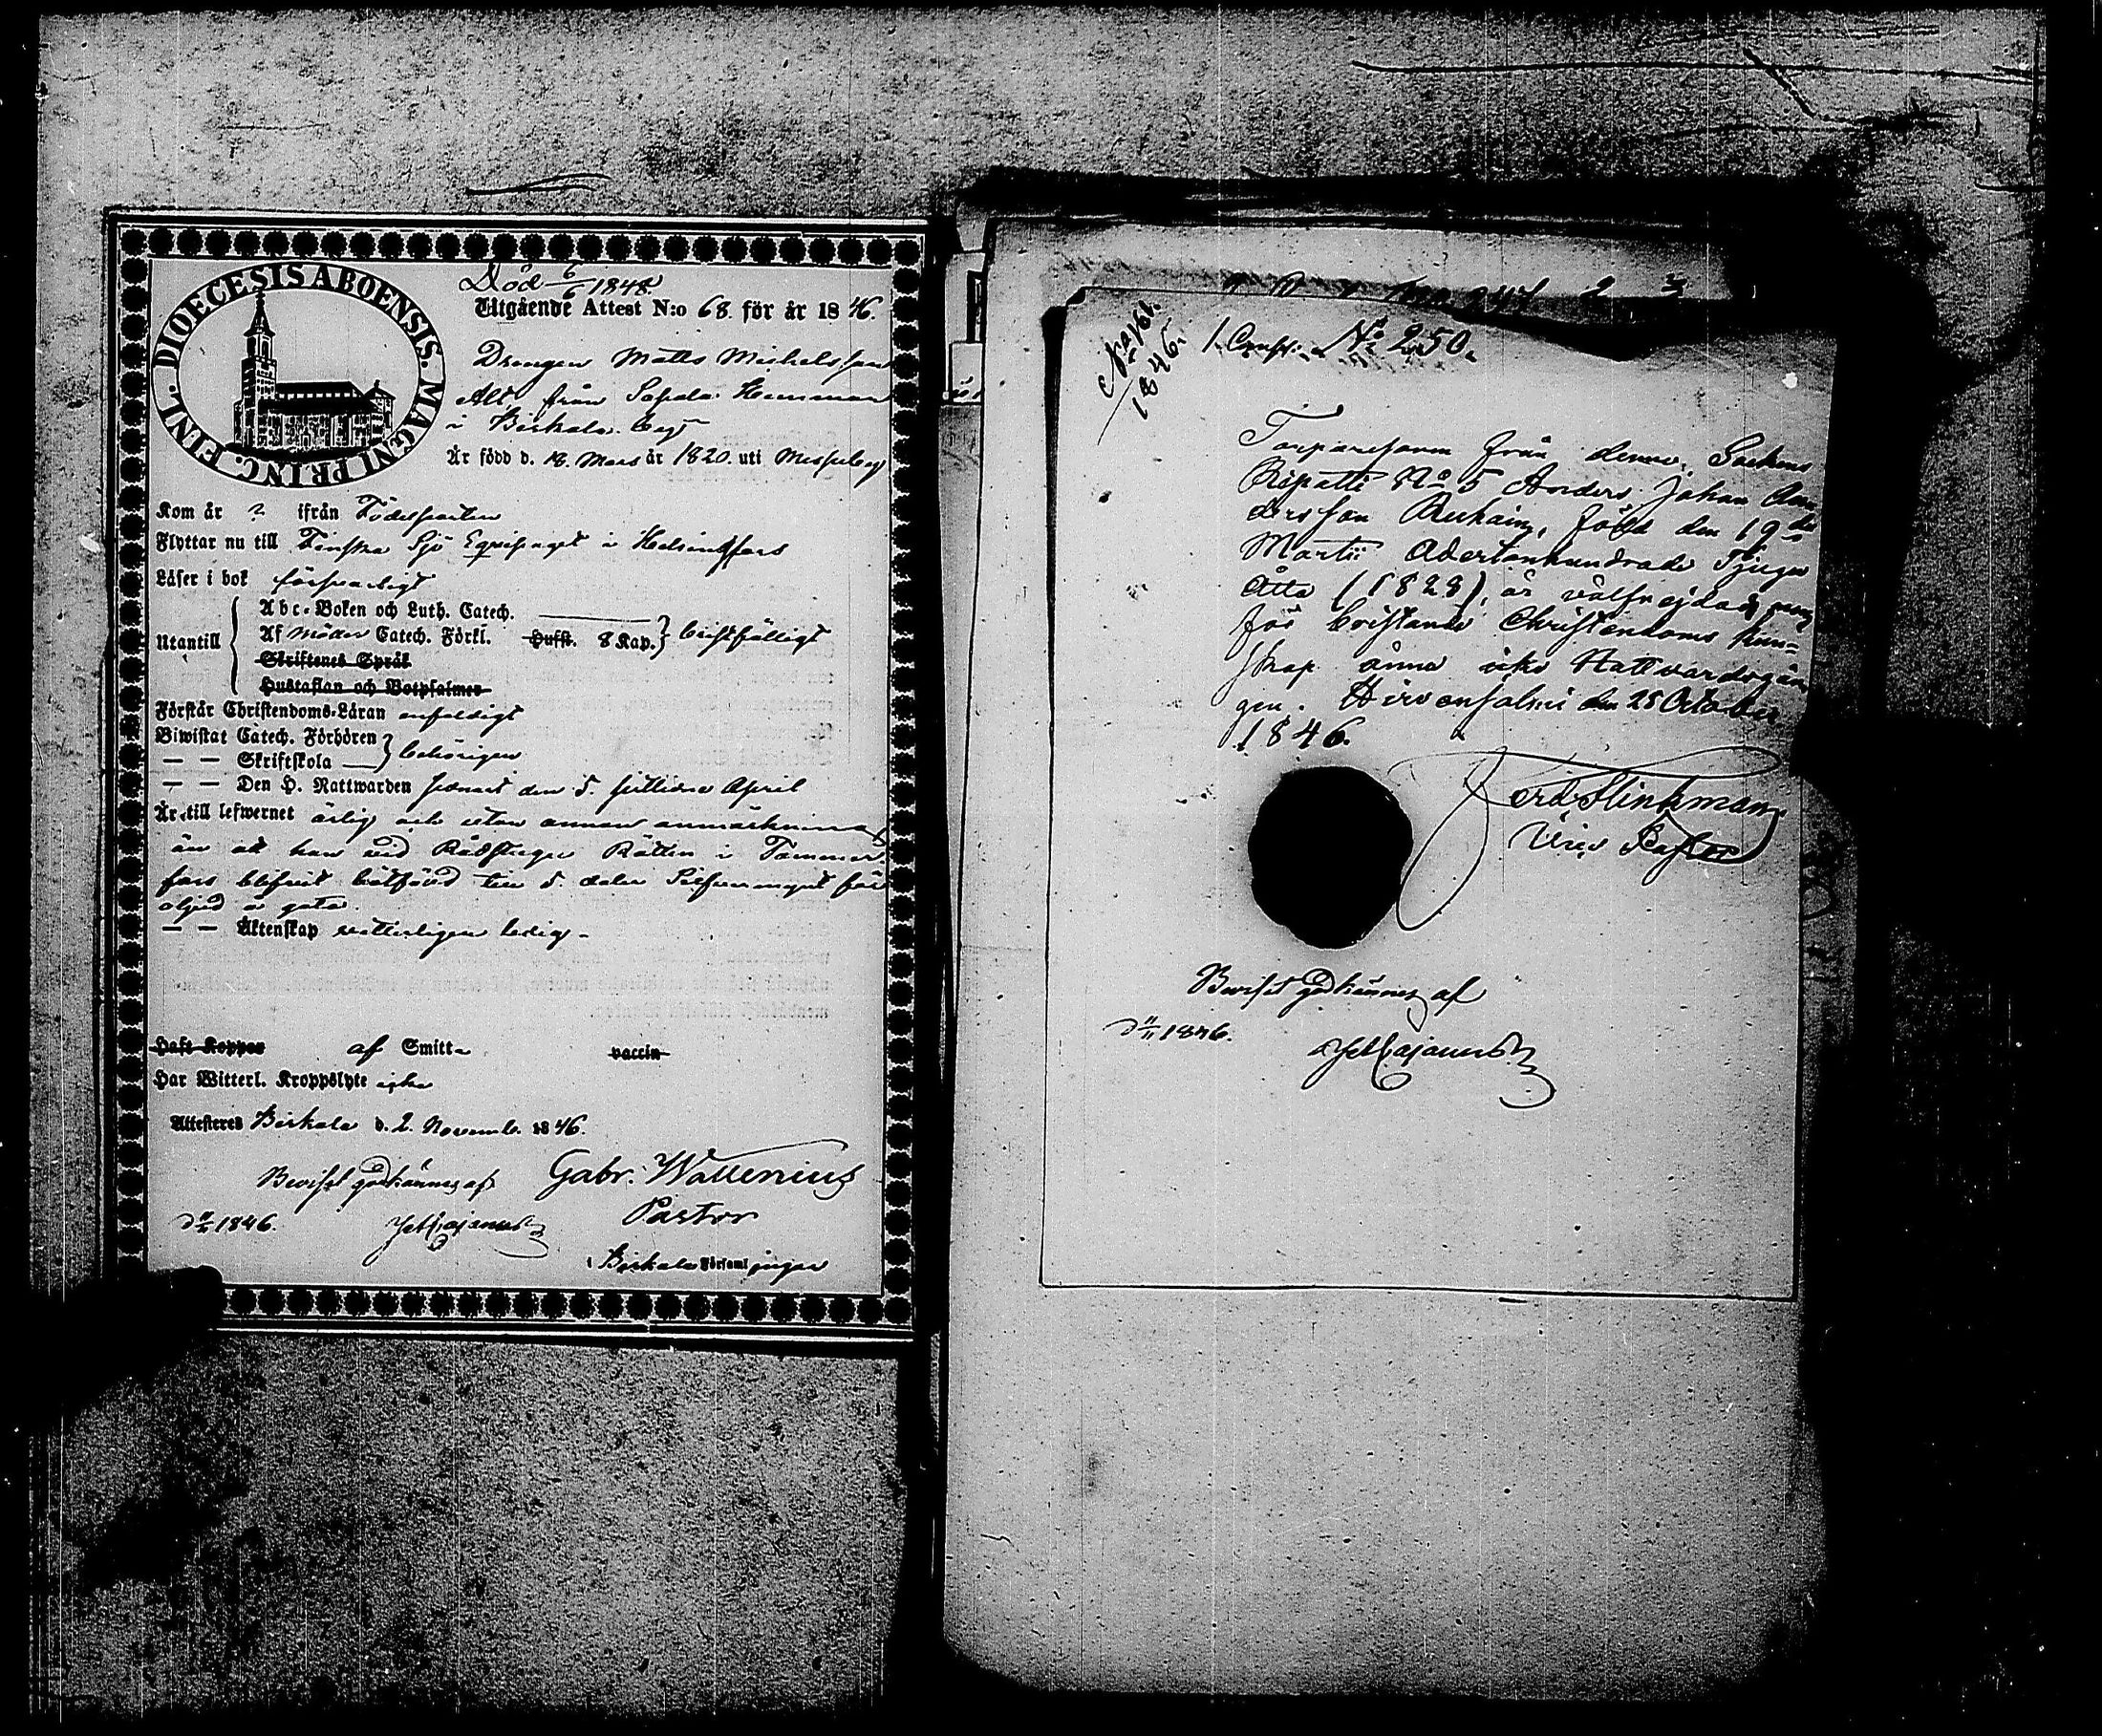 DIOECESIS ABOENSIS. MAGNI PRINC. FINL.
Död 6/6 1848
Utgående Attest N:o 68. för år 1846.
Drengen Matts Michelsson
Alt från Sopala Hemman
i Birkala Cap
Är född d. 18. Mars år 1820. uti Messuby
Kom år ? ifrån Födelseorten
Flyttar nu till Finska Sjö Equipaget i Helsingfors
Läser i bok försvarligt
Abc-Boken och Luth. Catech.
Utantill Af möder Catech. Förkl. Hufst. 8 Kap. bristfälligt
Skriftenes Språk
Hustaflan och Botpsalmer
Förstår Christendoms-Läran enfaldigt
Biwistat Catech. Förhören
— — Skriftskola behörigen
— — Den H. Nattwarden senast den 5. sistledne April
Är till lefwernet ärlig och utan annan anmärkning
än at han vid Rådstugu Rätten i Tammer-
fors blifvit bötfäld till 5. daler Silfvermynt för
oljud å gata.
— — Äktenskap vitterligen ledig -
Haft Koppor af Smitt- vaccin
Har Witterl. Kroppslyte icke
Attesteres Birkala d. 2. Novemb. 1846.
Beviset godkännes af Gabr. Wallenius
d 11/11 1846. Pastor
i Birkala Församlingar
N:o 161.
1846.
N:o 250.
Torparesonen från denne Sockens
N:o 5 Anders Johan An-
dersson född den 19de
Martii Adertonhundrade Tjugu
Åtta (1828), är välfrejdad, men
för bristande Christendoms kun-
skap ännu icke Nattvardsgån-
gen. Hirvensalmi den 25 October
1846.
Vice Pastor
Beviset godkännes af
d 11/11 1846.